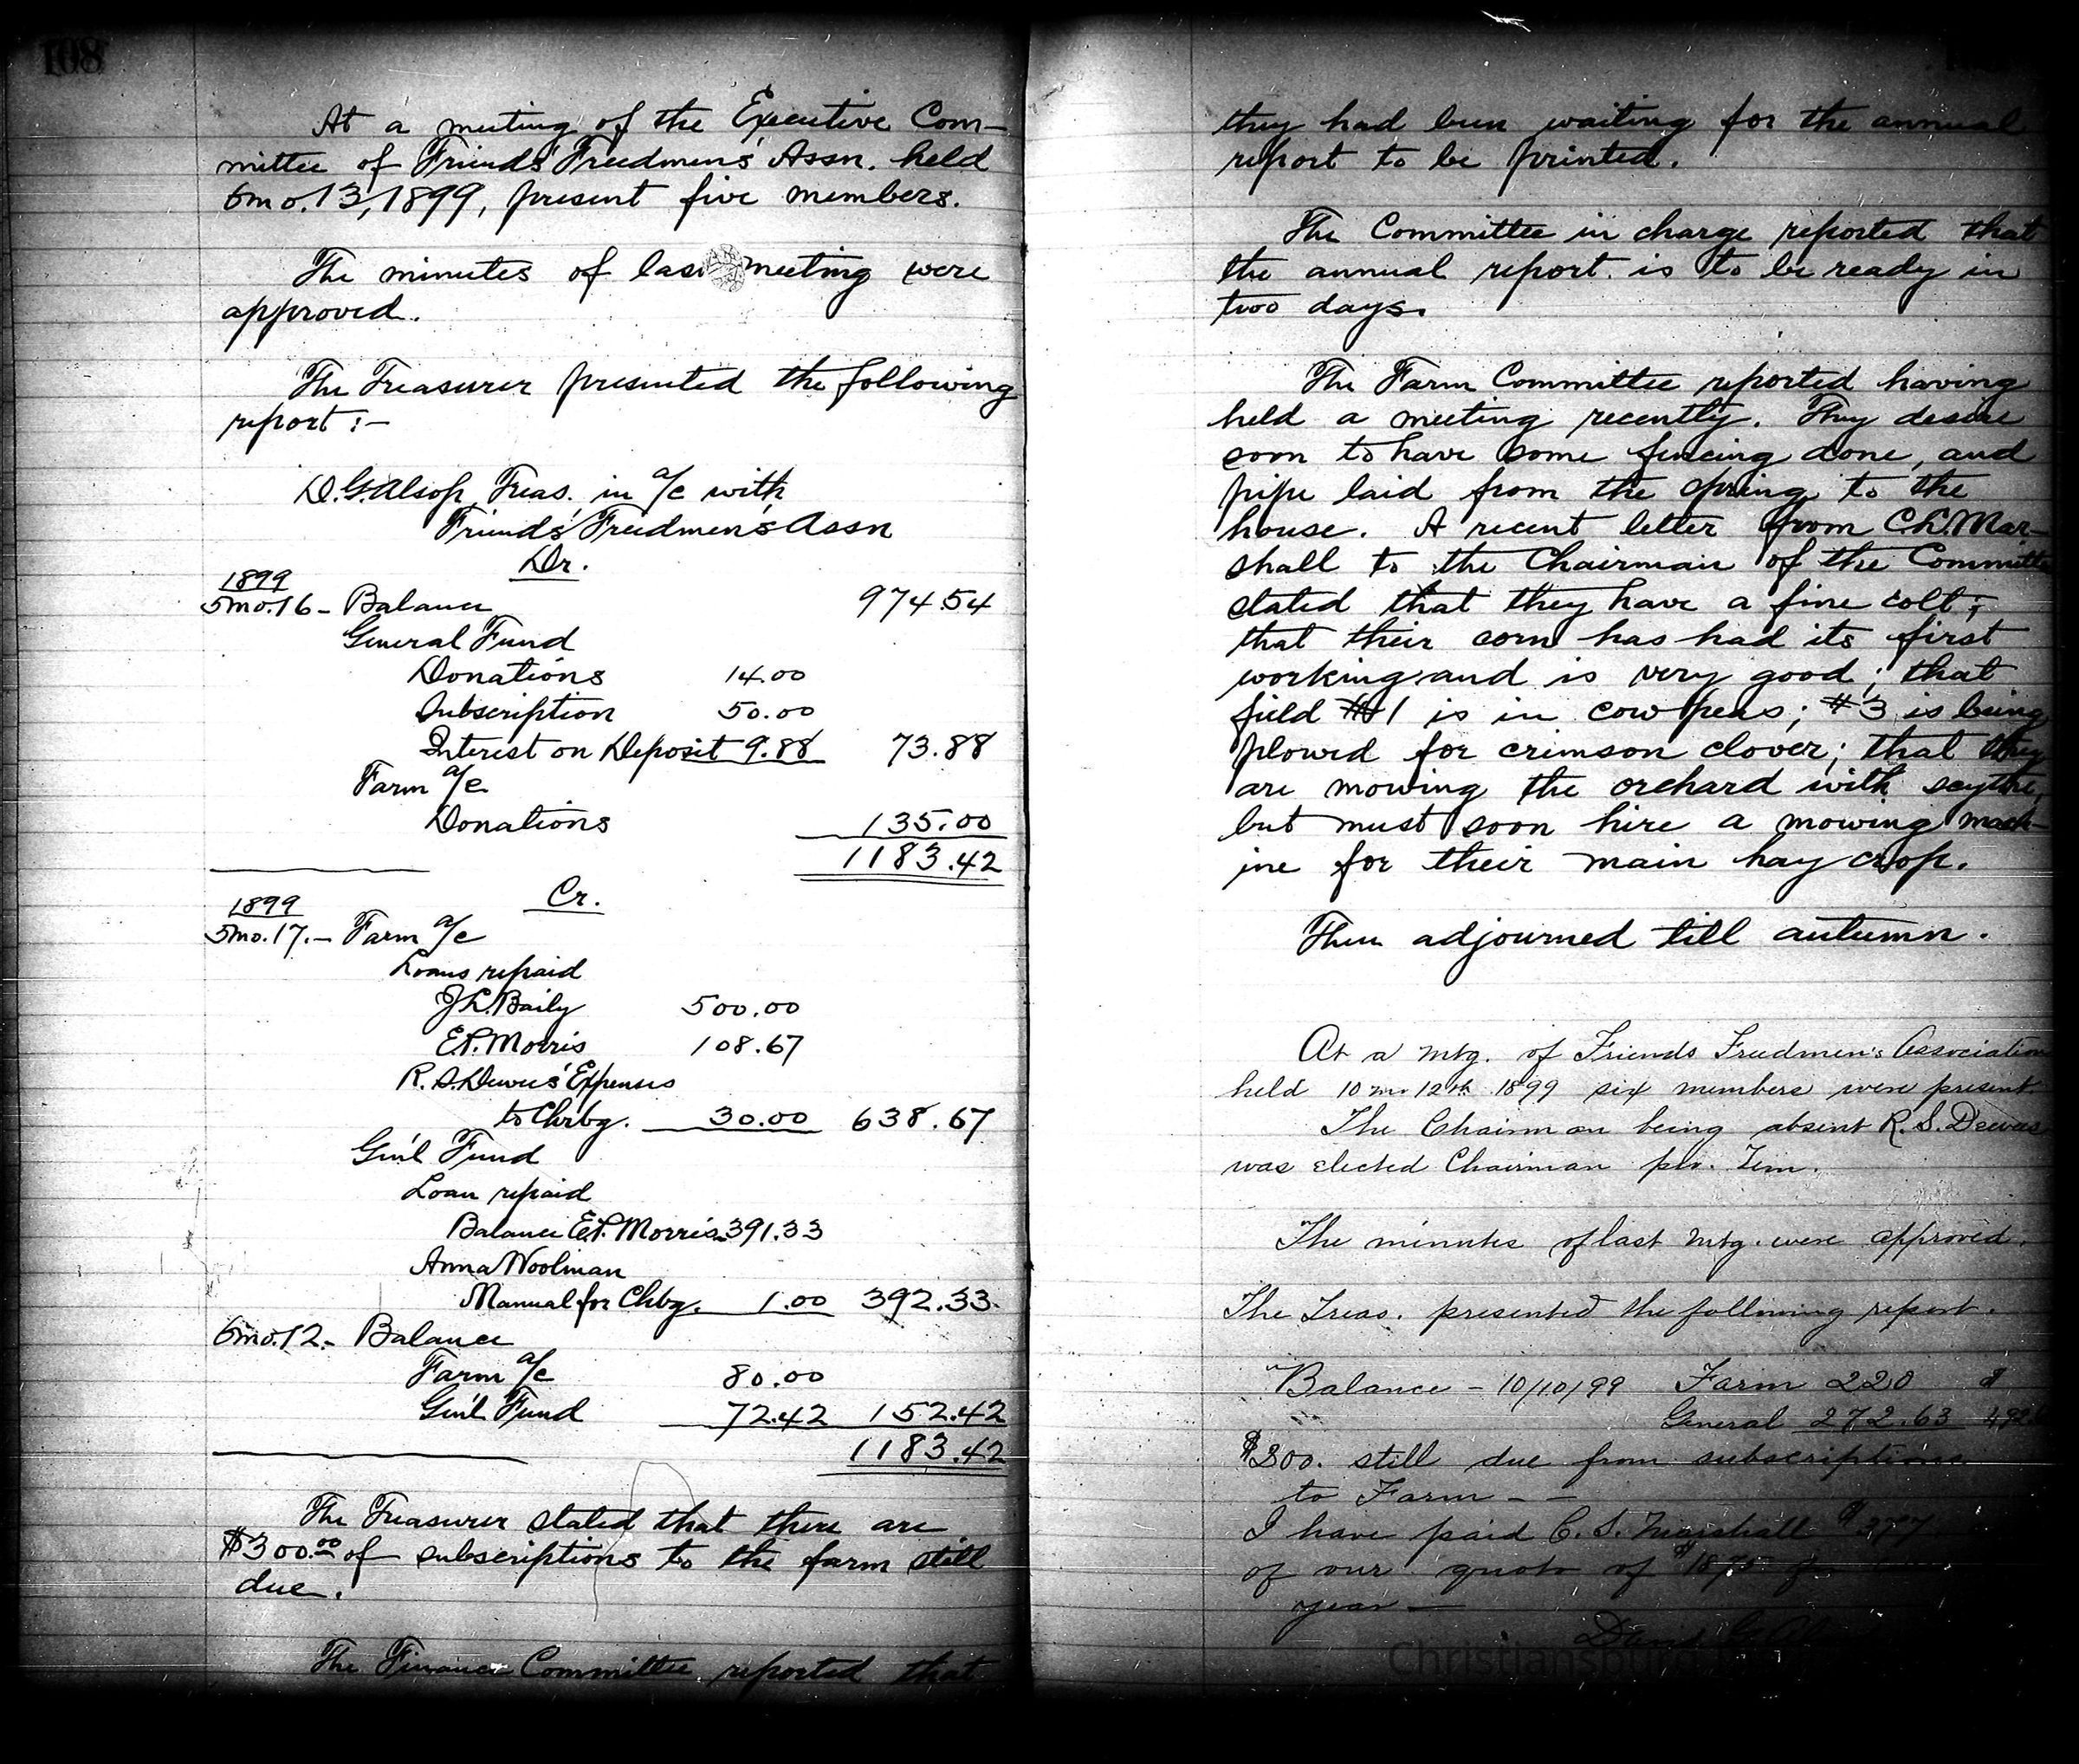 108
At a meeting of the Executive Com-
mittee of Friends' Freedmen's Assn. held
6mo.13,1899, present five members.
The minutes of last meeting were
approved.
The Treasurer presented the following
report :-
D.G.Alsop, Treas. in a/c with
Friends' Freedmen's Assn
Dr.
1899
5mo.16 - Balance 974.54
General Fund
Donations 14.00
Subscription 50.00
Interest on Deposit 9.88 73.88
Farm a/c
Donations 135.00
1183.42
Cr.
1899
5mo.17.- Farm a/c
Loans repaid
J.L.Baily 500.00
E.P.Morris 108.67
R.S.Dewees' Expenses
to Chrbg. 30.00 638.67
Gen'l Fund
Loan repaid
Balance E.P.Morris 391.33
Anna Woolman
Manual for Chbg. 1.00 392.33
6mo.12.- Balance
Farm a/c 80.00
Gen'l Fund 72.42 152.42
1183.42
The Treasurer stated that there are
$300.00 of subscriptions to the farm still
due.
The Finance Committee reported that
they had been waiting for the annual
report to be printed.
The Committee in charge reported that
the annual report is to be ready in
two days.
The Farm Committee reported having
held a meeting recently. They desire
soon to have some fencing done, and
pipe laid from the spring to the
house. A recent letter from C.L.Mar-
shall to the Chairman of the Committee
stated that they have a fine colt;
that their corn has had its first
working and is very good; that
field #1 is in cow peas; #3 is being
plowed for crimson clover; that they
are mowing the orchard with scythe,
but must soon hire a mowing mach-
ine for their main hay crop.
Then adjourned till autumn.
At a mtg. of Friends Freedmen's Association
held 10 mo 12th 1899 six members were present.
The Chairman being absent R.S.Dewees
was elected Chairman pro. Tem.
The minutes of last mtg. were approved.
The Treas. presented the following report.
"Balance - 10/10/99 Farm 220
General 272.63
$300. still due from subscriptions
to Farm - -
I have paid C. S. Marshall
of our quota of $1875
year —
Christiansburg